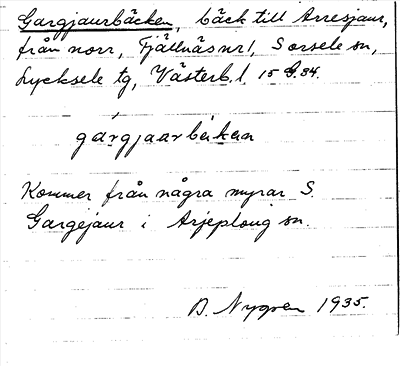 Gargjaurbäcken, bäck till Arresjaur,
från norr, Fjällnäs nr 1, Sorsele sn,
Lycksele tg, Västerb. l. 15 G. 34.
gárgjaarbèkean
Kommer från några myrar S.
Gargejaur i Arjeploug sn.
D. Nygren 1935.